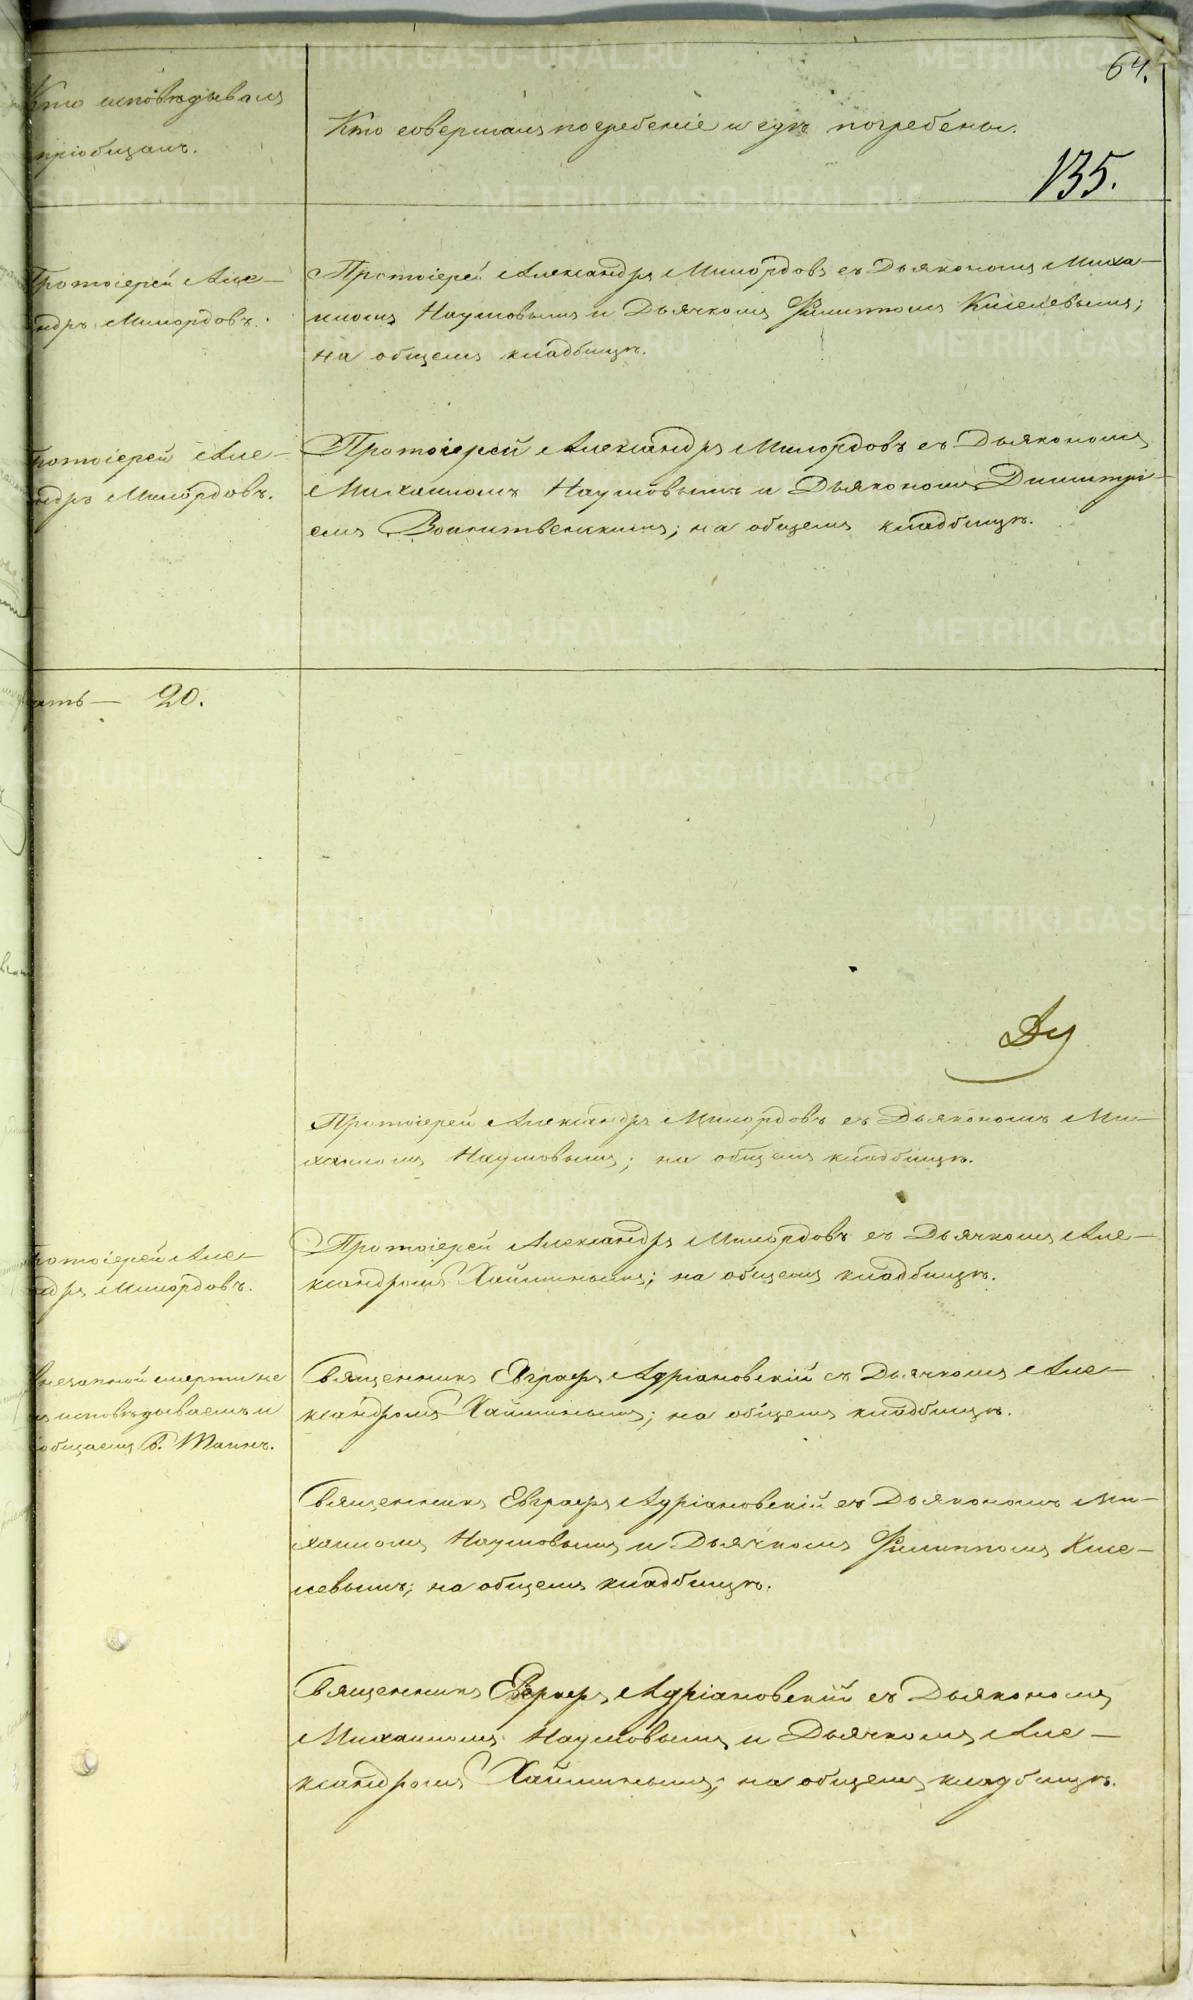 64.
Кто исповѣдывалъ
пріобщалъ.
Кто совершалъ погребеніе и гдѣ погребены.
135.
Протоіерей Алек-
ндръ Милордовъ.
Протоіерей Александръ Милордовъ съ Дьякономъ Миха-
иломъ Наумовымъ и Дьячкомъ Филиппомъ Киселевымъ;
на общемъ кладбищѣ.
ротоіерей Алек-
ндръ Милордовъ.
Протоіерей Александръ Милордовъ съ Дьякономъ
Михаиломъ Наумовымъ и Дьякономъ Димитрі-
емъ; на общемъ кладбищѣ.
ать — 20.
Протоіерей Александръ Милордовъ съ Дьякономъ Ми-
хаиломъ Наумовымъ; на общемъ кладбищѣ.
ротоіерей Але-
ндръ Милордовъ.
Протоіерей Александръ Милордовъ съ Дьячкомъ Але-
ксандромъ Хайминымъ; на общемъ кладбищѣ.
внезапной смерти не
исповѣдываемъ и
общаемъ С. Таинъ.
Священникъ Евграфъ Адріановскій съ Дьячкомъ Але-
ксандромъ Хайминымъ; на общемъ кладбищѣ.
Священникъ Евграфъ Адріановскій съ Дьякономъ Ми-
хаиломъ Наумовымъ и Дьячкомъ Филиппомъ Кисе-
левымъ; на общемъ кладбищѣ.
Священникъ Евграфъ Адріановскій съ Дьякономъ
Михаиломъ Наумовымъ и Дьячкомъ Але-
ксандромъ Хайминымъ; на общемъ кладбищѣ.
METRIKI.GASO-URAL.RU